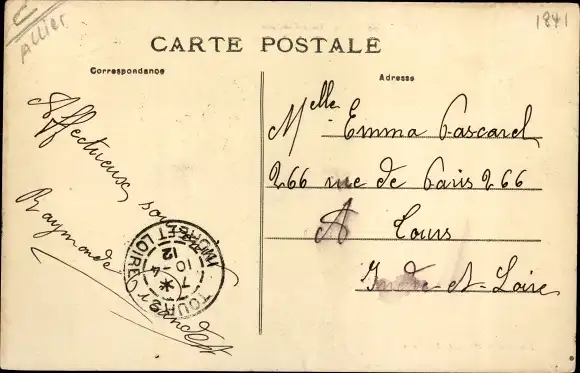 Allier
1841
CARTE POSTALE
Correspondance
Adresse
Affectueux
Raymonde
TOURS INDRE ET LOIRE
7 * 4
10
12
Melle Emma Pascarel
266 rue de Paris 266
A Tours
Indre-et-Loire